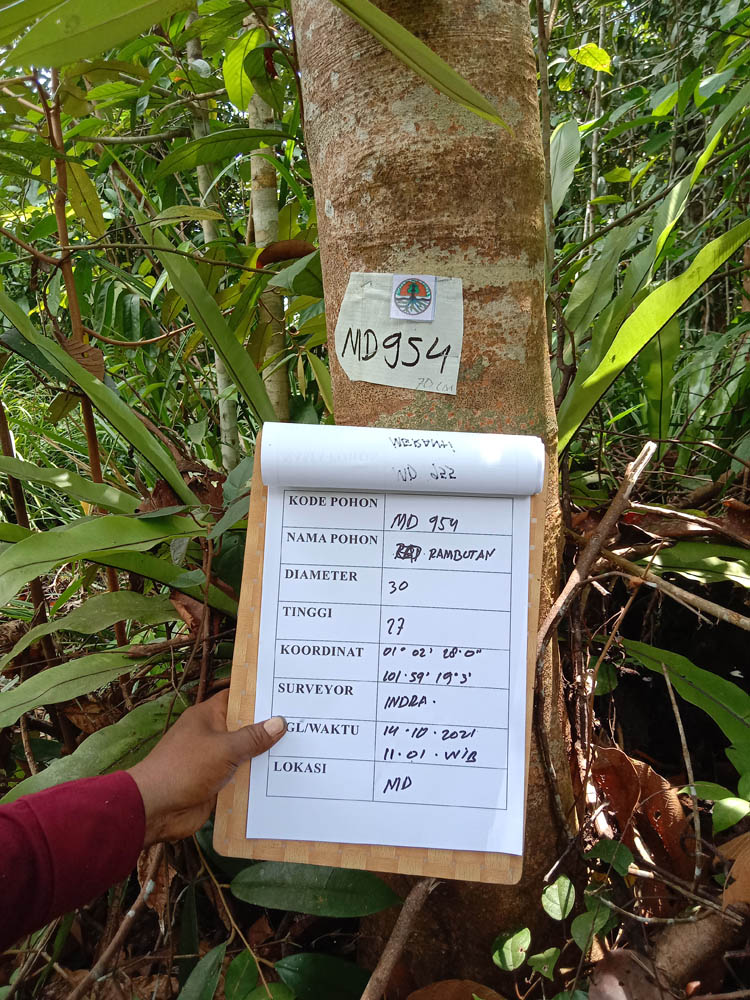 MD954
70 CM
KODE POHON MD 954
NAMA POHON RAMBUTAN
DIAMETER 30
TINGGI 27
KOORDINAT 01° 02' 28.0"
101.59' 19.3'
SURVEYOR INDRA.
GL/WAKTU 14.10.2021
11.01.WIB
LOKASI MD